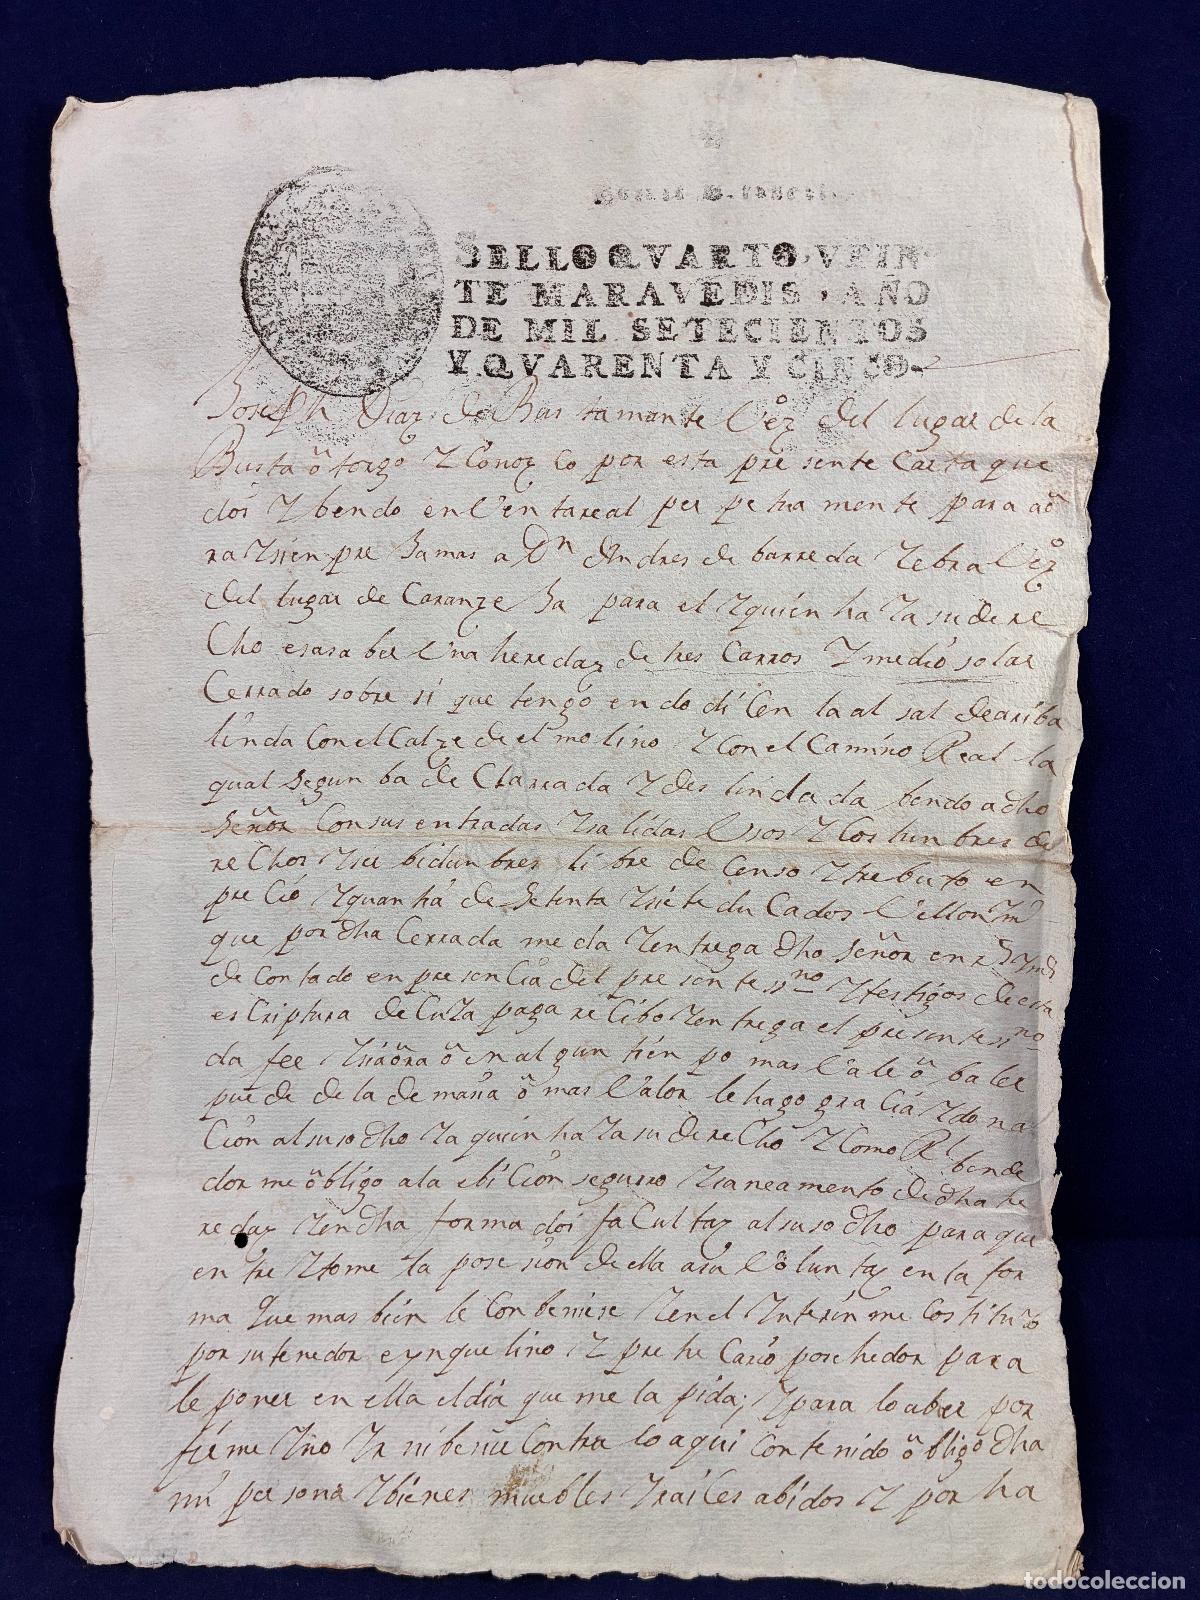 SELLO QVARTO, VEIN-
TE MARAVEDIS, AÑO
DE MIL SETECIENTOS
Y QVARENTA Y CINCO.
Joseph Diaz de Bustamante Vez.º del lugar de la
Busta otorgo y conozco por esta presente Carta que
doi y bendo en Venta real perpetuamente para ao
ra y sienpre Jamas a Dn Andres de barreda Yebra Vez.º
del lugar de Caranzeja para el y quien ha ya su dere
Cho esasaber Una heredaz de tres Carros y medio solar
Cerrado sobre si que tengo en do diCen la al sal de ariba
linda Con el Calze de el molino y con el Camino Real la
qual segun ba de Clarrada y des lindada bendo a dho
señor Con sus entradas y salidas Usos y Costunbres de
reChos y serbidunbres libre de Censo y trebuto en
preCio y quantia de setenta y siete duCados Vellon
que por dha Cerrada me da y entrega dho señor en
de Contado en presenCia del presente ss.no y testigos de esta
esCriptura de Cuya paga reCibo y entrega el presente ss.no
da fee y si aora o en algun tienpo mas Vale o baler
puede de la demasia o mas Valor le hago graCia y dona
Cion al susodho y a quien ha ya su dereCho y Como Rl bende
dor me obligo a la ebiCion seguro y saneamento de dha he
redaz y en dha forma doi faCultaz al susodho para que
entre y tome la posesion de ella a su Voluntaz en la for
ma que mas bien le Conbeniese y en el ynterin me Costituio
por su tenedor e ynquelino y preheCario posehedor para
le poner en ella el dia que me la pida; y para lo aber por
fierme y no yr ni benir Contra lo aqui Contenido obligo dha
mi persona y bienes muebles y raiCes abidos y por ha
todocoleccion